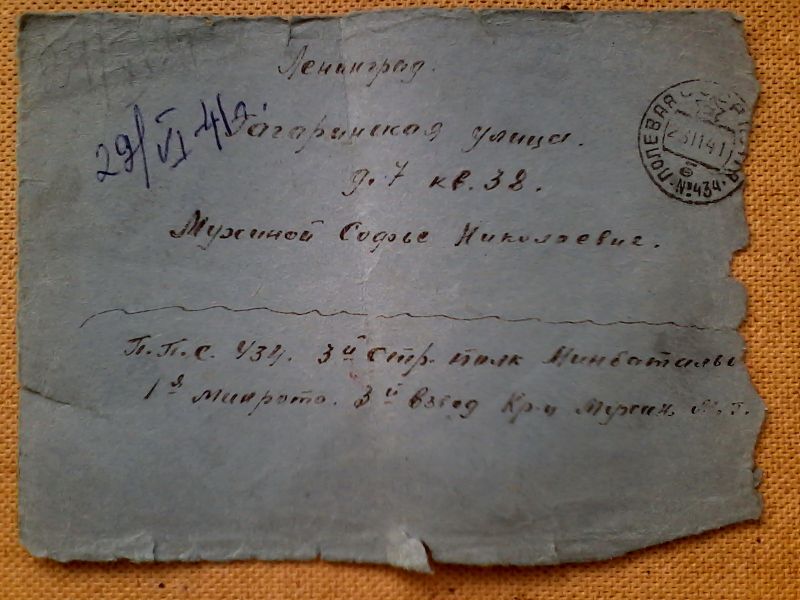 Ленинград.
29/VI-41г.
Гагаринская улица.
д. 7 кв. 38.
Мухиной Софье Николаевне.
П.П.С. 434. 3й стр. полк Минбаталь
1я минрота. 3й взвод Кр-ц Мухин М.Г.
ПОЛЕВАЯ
41
б
№434